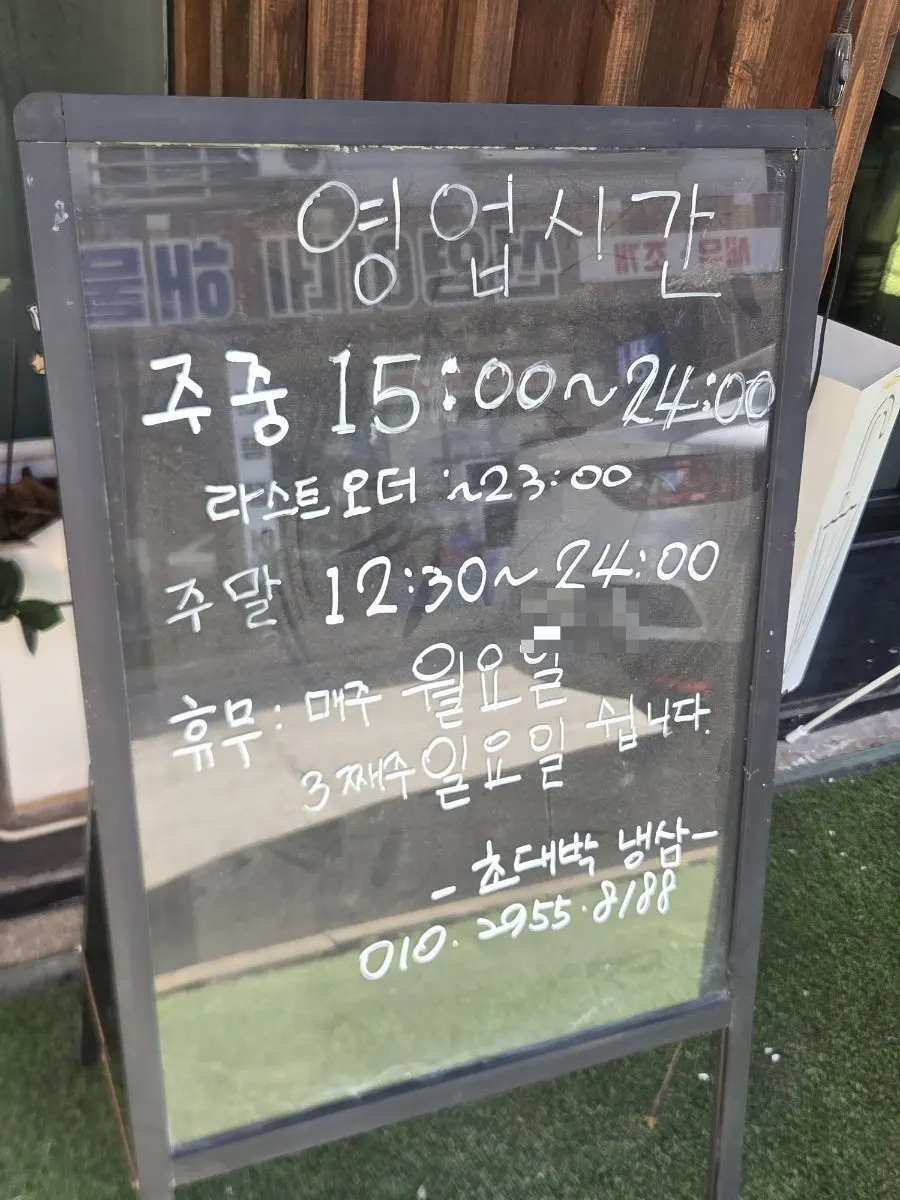 영업시간
주중 15:00~24:00
라스트오더 :~23:00
주말 12:30~24:00
휴무: 매주 월요일
3째주 일요일 쉽니다.
- 초대박 냉삼 -
010. 2955.8188
해물
새우·조개